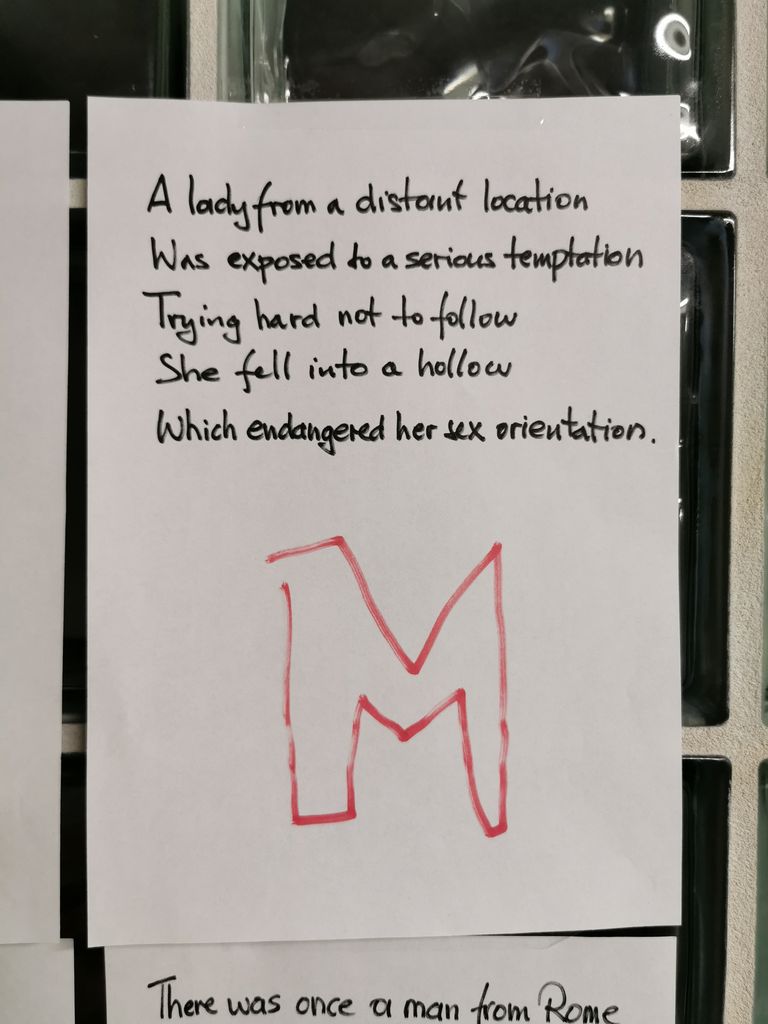 A lady from a distant location
Was exposed to a serious temptation
Trying hard not to follow
She fell into a hollow
Which endangered her sex orientation.
M
There was once a man from Rome